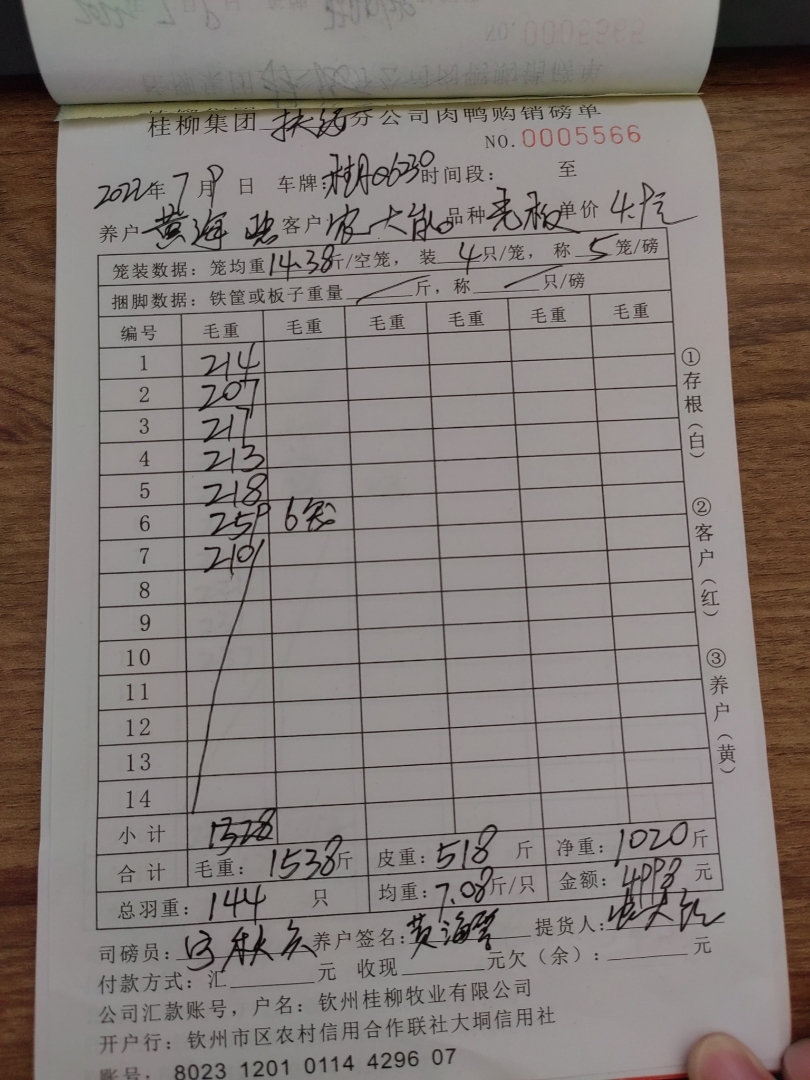 NO.0005565
桂柳集团 分公司肉鸭购销磅单
NO.0005566
2022年7月9日 车牌: 06230 时间段: 至
养户 黄海 客户 农大 品种 单价 4.9元
笼装数据:笼均重14.38斤/空笼,装4只/笼,称5笼/磅
捆脚数据:铁筐或板子重量 斤,称 只/磅
编号 毛重 毛重 毛重 毛重 毛重 毛重
1 214
2 207
3 217
4 213
5 218
6 259 6笼
7 210
8
9
10
11
12
13
14
小计 1328
合计 毛重:1538斤 皮重:518斤 净重:1020斤
总羽重:144只 均重:7.08斤/只 金额:4998元
司磅员: 养户签名:黄海 提货人:
付款方式:汇 元 收现 元欠(余): 元
公司汇款账号,户名:钦州桂柳牧业有限公司
开户行:钦州市区农村信用合作联社大垌信用社
账号:8023 1201 0114 4296 07
①存根(白)
②客户(红)
③养户(黄)